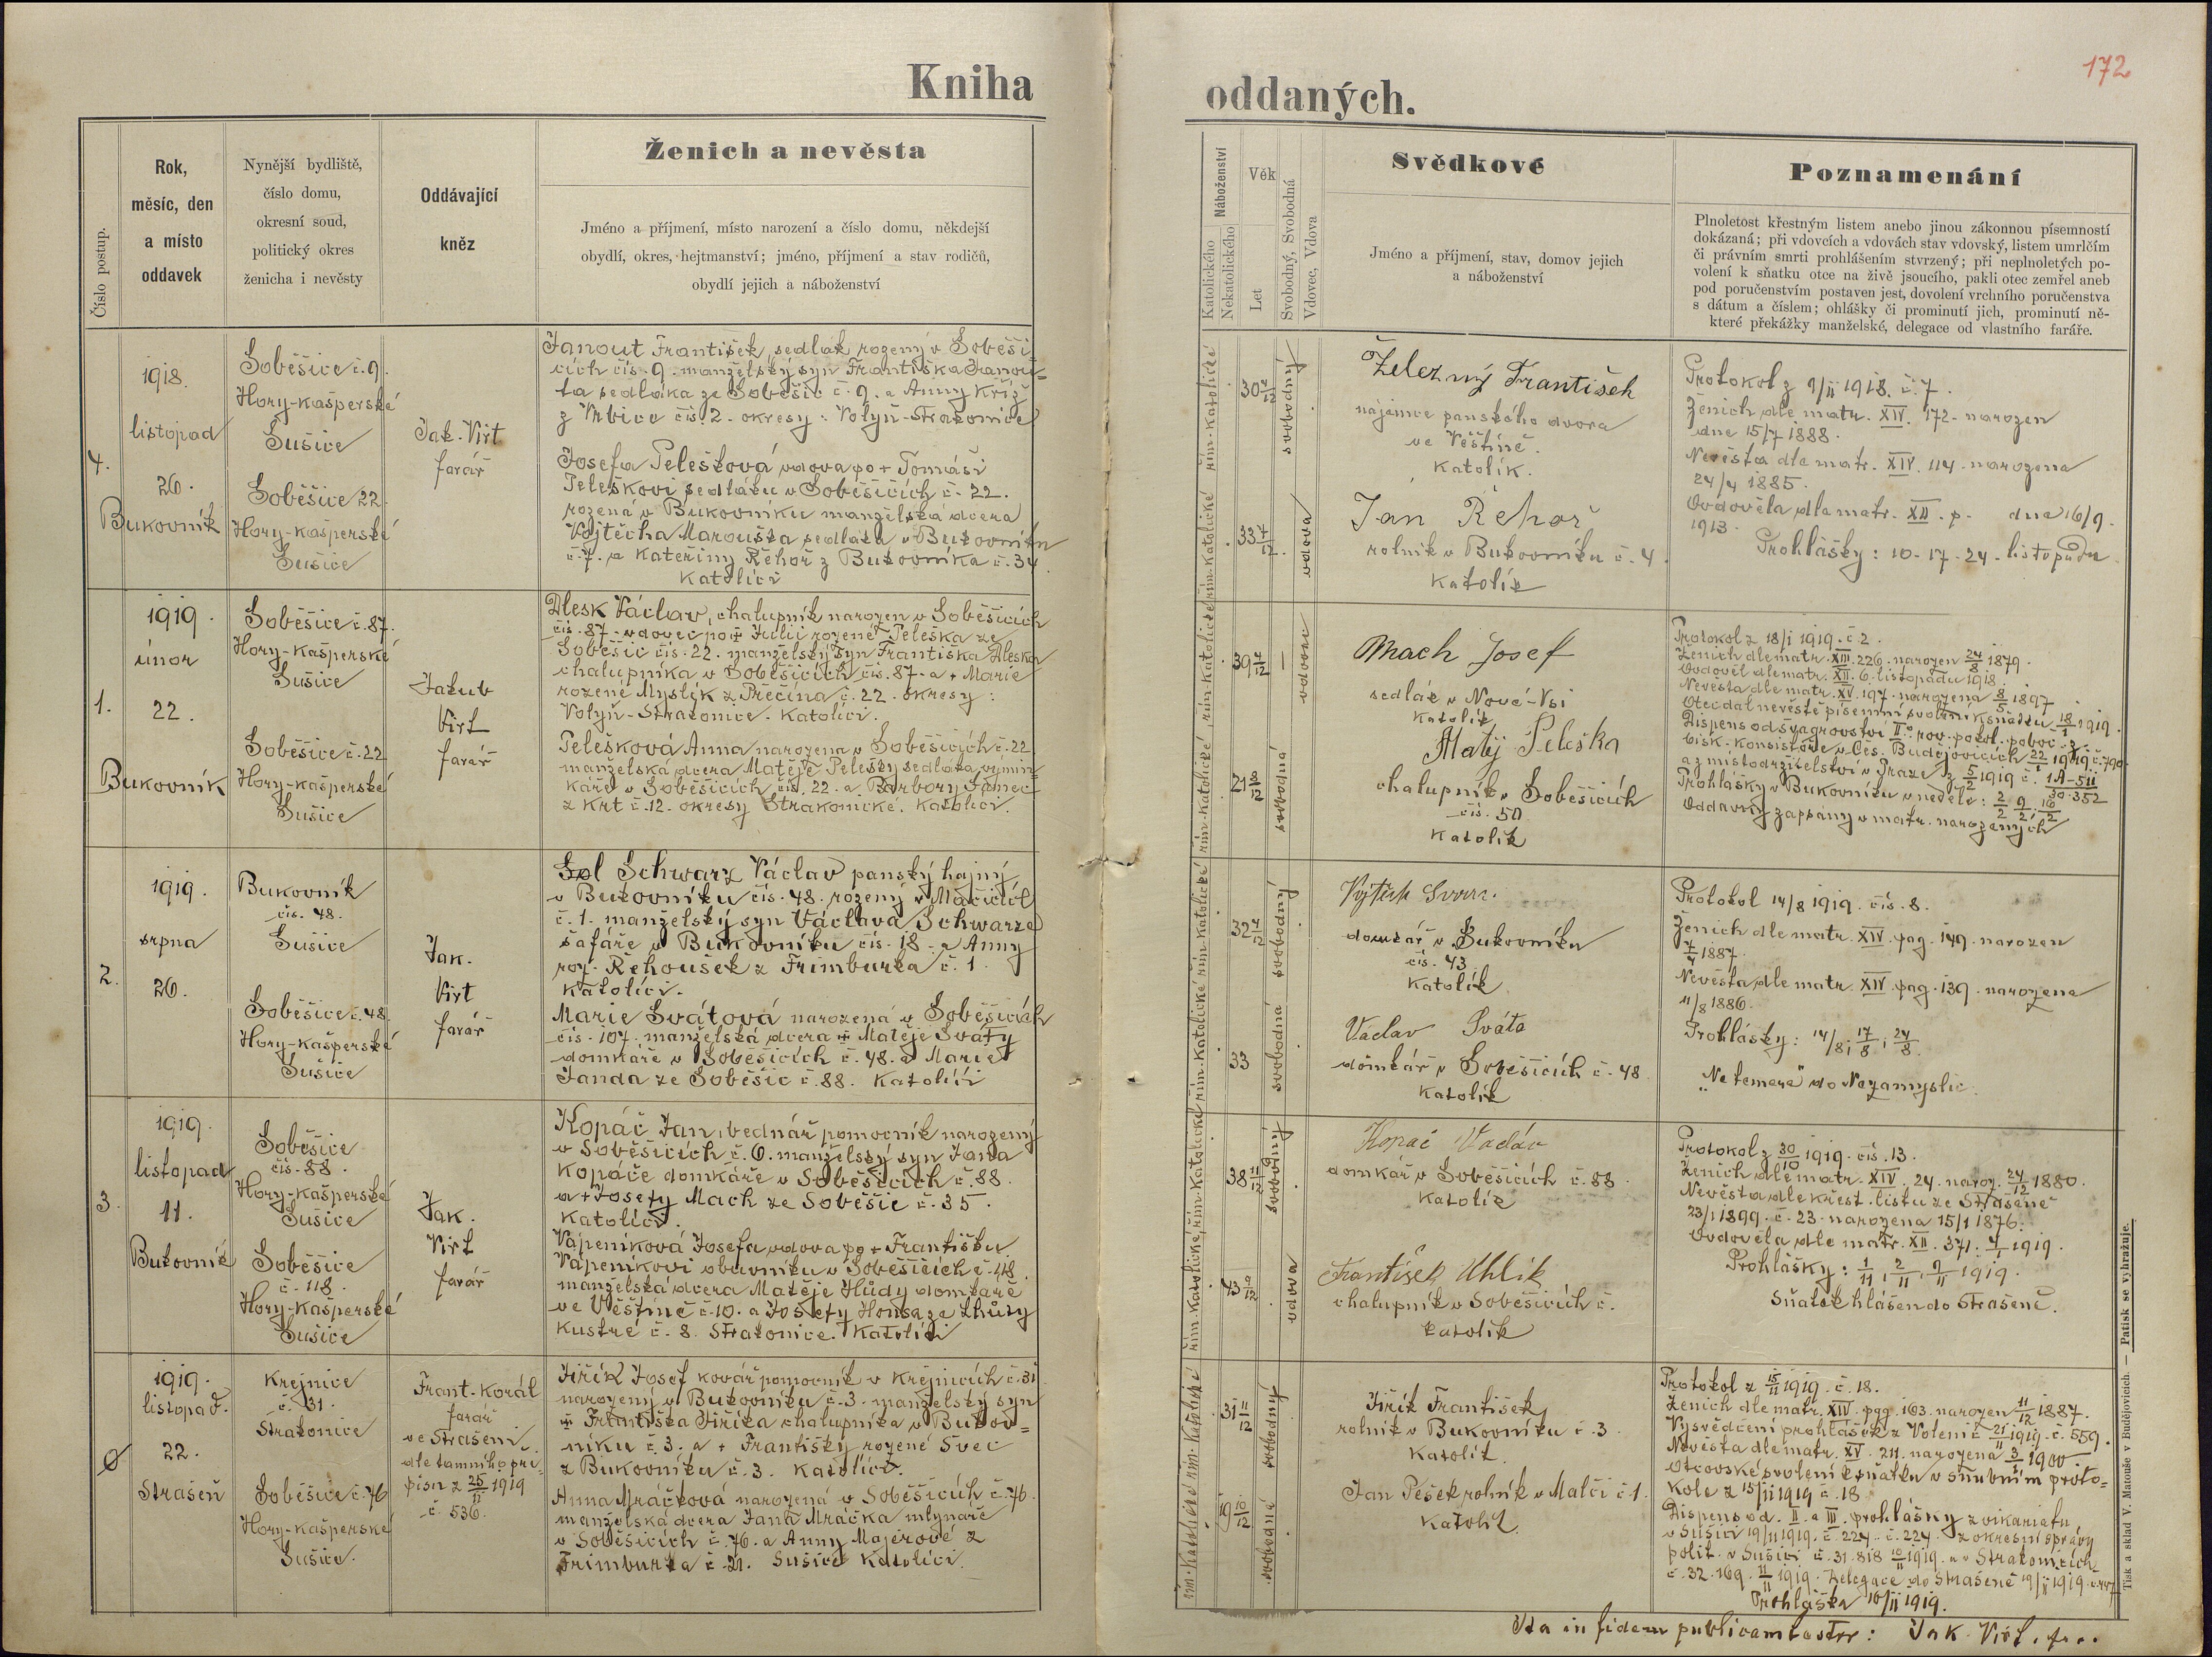 172
Kniha oddaných.
Číslo postup.
Rok,
měsíc, den
a místo
oddavek
Nynější bydliště,
číslo domu,
okresní soud,
politický okres
ženicha i nevěsty
Oddávající
kněz
Ženich a nevěsta
Jméno a příjmení, místo narození a číslo domu, někdejší
obydlí, okres, hejtmanství; jméno, příjmení a stav rodičů,
obydlí jejich a náboženství
Náboženství
Katolického
Nekatolického
Věk
Let
Svobodný, Svobodná
Vdovec, Vdova
Svědkové
Jméno a příjmení, stav, domov jejich
a náboženství
Poznamenání
Plnoletost křestným listem anebo jinou zákonnou písemností
dokázaná; při vdovcích a vdovách stav vdovský, listem umrlčím
či právním smrti prohlášením stvrzený; při neplnoletých po-
volení k sňatku otce na živě jsoucího, pakli otec zemřel aneb
pod poručenstvím postaven jest, dovolení vrchního poručenstva
s dátum a číslem; ohlášky či prominutí jich, prominutí ně-
které překážky manželské, delegace od vlastního faráře.
4.
1918.
listopad
26.
Bukovník
Soběšice č. 9.
Hory-Kašperské
Sušice
Soběšice 22.
Hory-Kašperské
Sušice
Jak. Virt
farář
Janout František, sedlák rozený v Soběši-
cích čís. 9. manželský syn Františka Janou-
ta sedláka ze Soběšic č. 9. a Anny Kříž
z Vrbice čís. 2. okresy: Volyň-Strakonice
Josefa Pelešková vdova po + Tomáši
Peleškovi sedláku v Soběšicích č. 22.
rozená v Bukovníku manželská dcera
Vojtěcha Marouška sedláka v Bukovníku
č. 7. a Kateřiny Řehoř z Bukovníka č. 34.
Katolíci
řím. katolické
30 4/12
svobodný
řím. katolické
33 7/12
vdova
Železný František
nájemce panského dvora
ve Věštíně.
Katolík.
Jan Řehoř
rolník v Bukovníku č. 4.
Katolík
Protokol z 9/II 1918. č. 7.
Ženich dle matr. XIV. 172. narozen
dne 15/7 1888.
Nevěsta dle matr. XIV. 114. narozena
24/4 1885.
Ovdověla dle matr. XII. p. dne 16/9.
1913.
Prohlášky: 10. 17. 24. listopadu.
1.
1919.
únor
22.
Bukovník
Soběšice č. 87.
Hory-Kašperské
Sušice
Soběšice č. 22
Hory-Kašperské
Sušice
Jakub
Virt
farář
Alesk Václav, chalupník narozen v Soběšicích
čís. 87. vdovec po + Julii rozené Peleška ze
Soběšic čís. 22. manželský syn Františka Aleska
chalupníka v Soběšicích čís. 87. a + Marie
rozené Myslík z Přečína č. 22. okresy:
Volyň-Strakonice. Katolíci.
Pelešková Anna narozena v Soběšicích č. 22.
manželská dcera Matěje Pelešky sedláka výmin-
káře v Soběšicích čís. 22. a Barbory Janec
z Krt č. 12. okresy Strakonické. Katolíci.
řím. katolické
vdovec
řím. katolické
svobodná
Mach Josef
sedlák v Nové-Vsi
Katolík
Matěj Peleška
chalupník v Soběšicích
čís. 50
Katolík
Protokol z 18/I 1919. č. 2.
Ženich dle matr. XIII. 226. narozen 24/8 1879.
Ovdověl dle matr. XII. 6. listopadu 1918.
Nevěsta dle matr. XV. 197. narozena 8/5 1897.
Otec dal nevěstě písemní svolení k sňatku 18/1 1919.
Dispens od švagrovství II.° rov. pokol. poboč. z
bisk. konsistoře v Čes. Budějovicích 22/1 1919. č. 790.
a z místodržitelství v Praze z 5/2 1919 č. 1A-511/30.352
Prohlášky v Bukovníku v neděle: 2/2 9/2 16/2
Oddavky zapsány v matr. narozených
2.
1919.
srpna
26.
Bukovník
čís. 48.
Sušice
Soběšice č. 48.
Hory-Kašperské
Sušice
Jak.
Virt
farář
Schwarz Václav panský hajný
v Bukovníku čís. 48. rozený v Mačicích
č. 1. manželský syn Václava Schwarze
šafáře v Bukovníku čís. 18. a Anny
roz. Řehoušek z Frimburka č. 1.
Katolíci.
Marie Svátová narozená v Soběšicích
čís. 107. manželská dcera + Matěje Sváty
domkáře v Soběšicích č. 48. a Marie
Janda ze Soběšic č. 88. Katolíci
řím. katolické
32 4/12
svobodný
řím. katolické
33
svobodná
domkář v Bukovníku
čís. 43
Katolík
Václav Sváta
domkář v Soběšicích č. 48
Katolík
Protokol 14/8 1919. čís. 8.
Ženich dle matr. XIV. pag. 149. narozen
7/4 1887.
Nevěsta dle matr. XIV. pag. 139. narozena
11/8 1886.
Prohlášky: 14/8; 17/8; 24/8.
„Ne temere" do Nezamyslic.
3.
1919.
listopad
11.
Bukovník
Soběšice
čís. 88.
Hory-Kašperské
Sušice
Soběšice
č. 118.
Hory-Kašperské
Sušice
Jak.
Virt
farář
Kopáč Jan, bednář pomocník narozený
v Soběšicích č. 6. manželský syn Jana
Kopáče domkáře v Soběšicích č. 88.
a + Josefy Mach ze Soběšic č. 35.
Katolíci.
Vápeníková Josefa vdova po + Františku
Vápeníkovi obuvníku v Soběšicích č. 118.
manželská dcera Matěje Hůdy domkáře
ve Věštíně č. 10. a Josefy Honsa ze Lhůty
Kustré č. 8. Strakonice. Katolíci
řím. katolické
38 11/12
svobodný
řím. katolické
43 10/12
vdova
Kopáč Václav
domkář v Soběšicích č. 88.
Katolík
František Uhlík
chalupník v Soběšicích č.
Katolík
Protokol z 30/10 1919. čís. 13.
Ženich dle matr. XIV. 24. naroz. 24/12 1880.
Nevěsta dle křest. listu ze Strašeně
23/1 1899. č. 23. narozena 15/1 1876.
Ovdověla dle matr. XII. 371. 4/1 1919.
Prohlášky: 1/11, 2/11, 9/11 1919.
Sňatek hlášen do Strašeně.
0
1919.
listopad.
22.
Strašeň
Krejnice
č. 31.
Strakonice
Soběšice č. 76
Hory-Kašperské
Sušice.
Frant. Korál
farář
ve Strašeni
dle tamního pří-
pisu z 25/11 1919
č. 536.
Jiřík Josef kovář pomocník v Krejnicích č. 31
narozený v Bukovníku č. 3. manželský syn
+ Františka Jiříka chalupníka v Bukov-
níku č. 3. a + Františky rozené Švec
z Bukovníku č. 3. Katolíci.
Anna Mráčková narozená v Soběšicích č. 76.
manželská dcera Jana Mráčka mlynáře
v Soběšicích č. 76. a Anny Majerové z
Frimburka č. 21. Sušice Katolíci.
řím. katolické
31 11/12
svobodný
řím. katolické
19 10/12
svobodná
Jiřík František
rolník v Bukovníku č. 3.
Katolík.
Jan Pešek rolník v Malči č. 1.
Katolík.
Protokol z 15/11 1919. č. 18.
Ženich dle matr. XIV. pag. 163. narozen 11/12 1887.
Vysvědčení prohlášek z Volení č. 21/11 1919. č. 559.
Nevěsta dle matr. XV. 211. narozena 3/1 1900
Otcovské svolení k sňatku v snubním proto-
kole z 15/11 1919 č. 18
Dispens od. II. a III. prohlášky z vikariatu
v Sušici 19/11 1919. č. 224. z okresní správy
polit. v Sušici č. 31.818 10/11 1919. a v Strakonicích
č. 32.169. 11/11 1919. Delegace do Strašeně 19/11 1919.
Prohláška 16/11 1919.
Ita in fidem publicam testor: Jak. Virt. far.
Tisk a sklad V. Matouše v Budějovicích. — Patisk se vyhražuje.